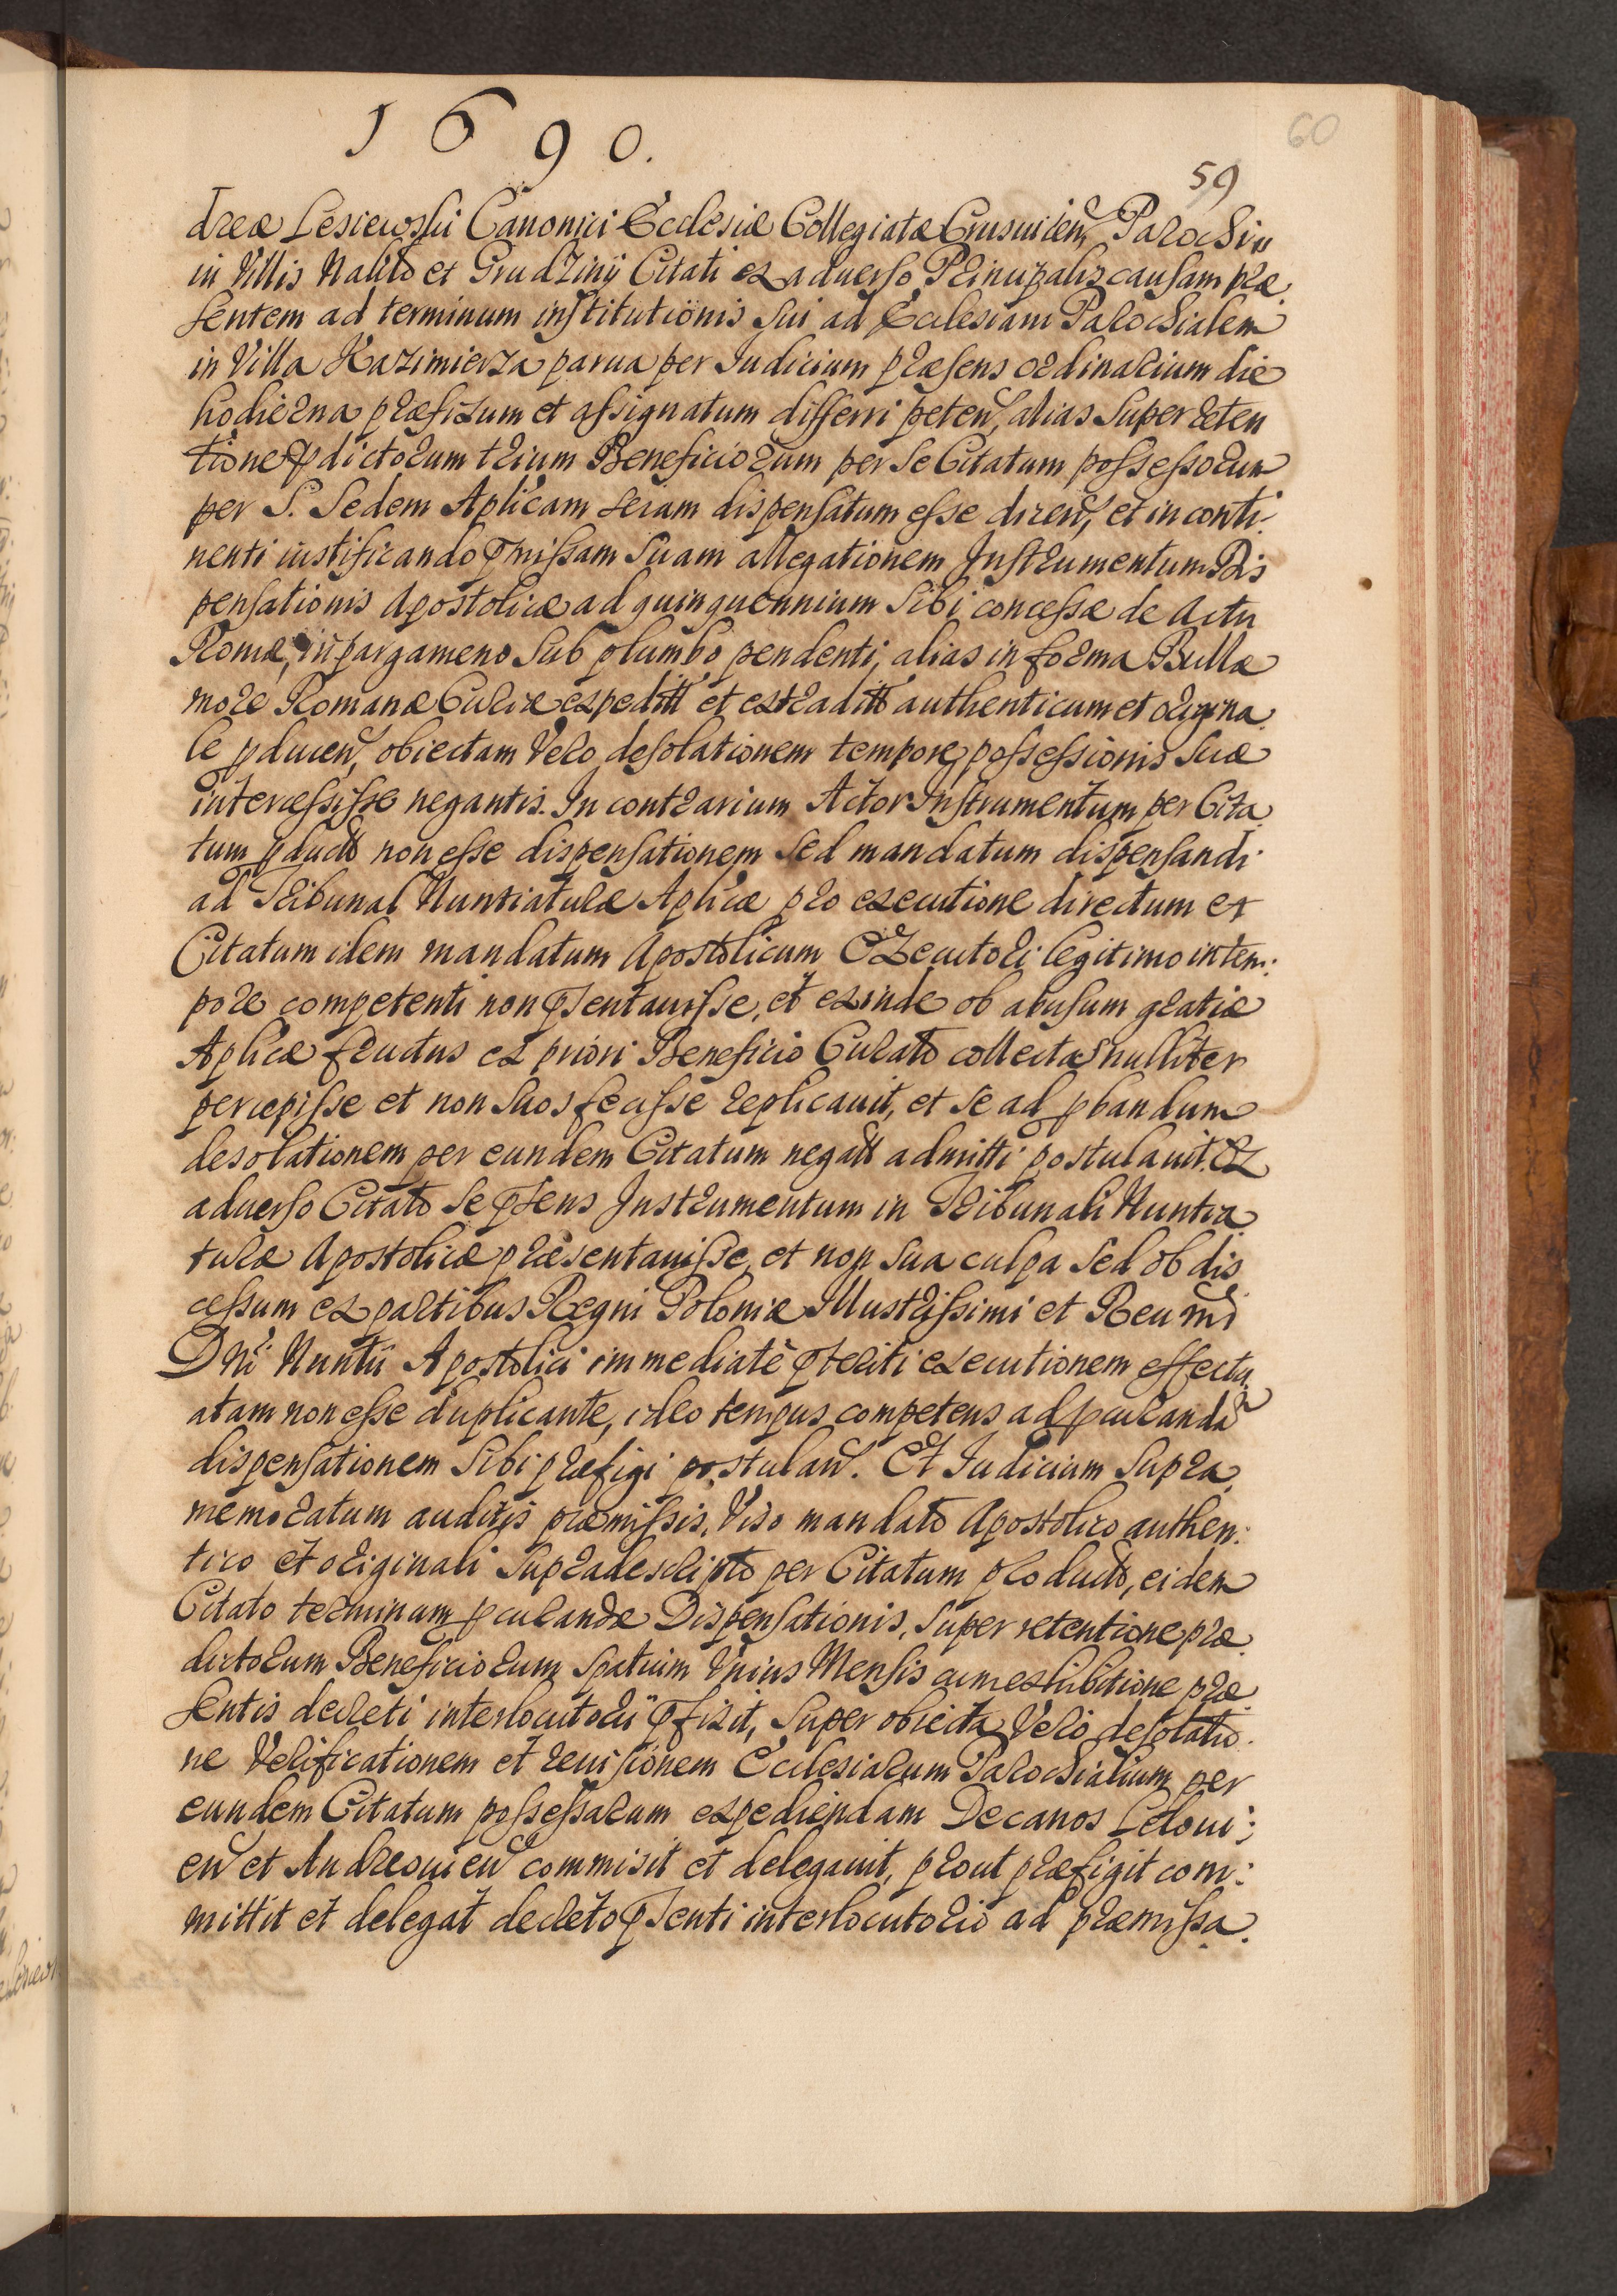 1690.
60
59
dreæ Lesiewski Canonici Ecclesiæ Collegiatæ Crusuicień Parochi
in Villis et Grudziny Citati ex aduerso Principalis causam præ
sentem ad terminum institutionis sui ad Ecclesiam Parochialem
in Villa Kazimierza parua per Iudicium præsens ordinarium die
hodierna præfixum et assignatum differri peteń, alias super reten
tione pdictorum trium Beneficiorum per se Citatum possessorum
per S. Sedem Aplicam secum dispensatum esse diceń, et in conti
nenti iustificando pmissam suam allegationem Instrumentum Dis
pensationis Apostolicæ ad quinquennium sibi concessæ de Actu
Romæ, in pargameno sub plumbo pendenti, alias in forma Bullæ
more Romanæ Curiæ expeditt et extraditt authenticum et origina
le pduceń, obiectam Vero desolationem tempore possessionis suæ
intercessisse negantis. In contrarium Actor Instrumentum per Cita
tum pduct non esse dispensationem sed mandatum dispensandi
ad Tribunal Nuntiaturæ Aplicæ pro executione directum et
Citatum idem mandatum Apostolicum Executori legitimo in tem:
pore competenti non psentauisse, et exinde ob abusum gratiæ
Aplicæ fructus ex priori Beneficio Curato collectas nulliter
percepisse et non suos fecisse replicauit, et se ad pbandum
desolationem per eundem Citatum negatt admitti postulauit. Ex
aduerso Citato se psens Instrumentum in Tribunali Nuntia
turæ Apostolicæ præsentauisse, et non sua culpa sed ob dis
cessum ex partibus Regni Poloniæ Illustrissimi et Reu mi
Dni Nuntii Apostolici immediatè pteriti executionem effectu
atam non esse duplicante, ideo tempus competens ad pcurandā
dispensationem sibi præfigi postulań. Et Iudicium supra
memoratum auditis præmissis, Viso mandato Apostolico authen:
tico et originali supradescripto per Citatum producto, eidem
Citato terminum pcurandæ Dispensationis, super retentione præ
dictorum Beneficiorum spatium Vnius Mensis cum exhibitione præ
sentis decreti interlocutorii pfixit, super obiecta Vero desolatio
ne Verificationem et reuisionem Ecclesiarum Parochialium per
eundem Citatum possessarum expediendam Decanos Leloui:
eń et Andreouień commisit et delegauit, prout præfigit com:
mittit et delegat decreto psenti interlocutorio ad præmissa.